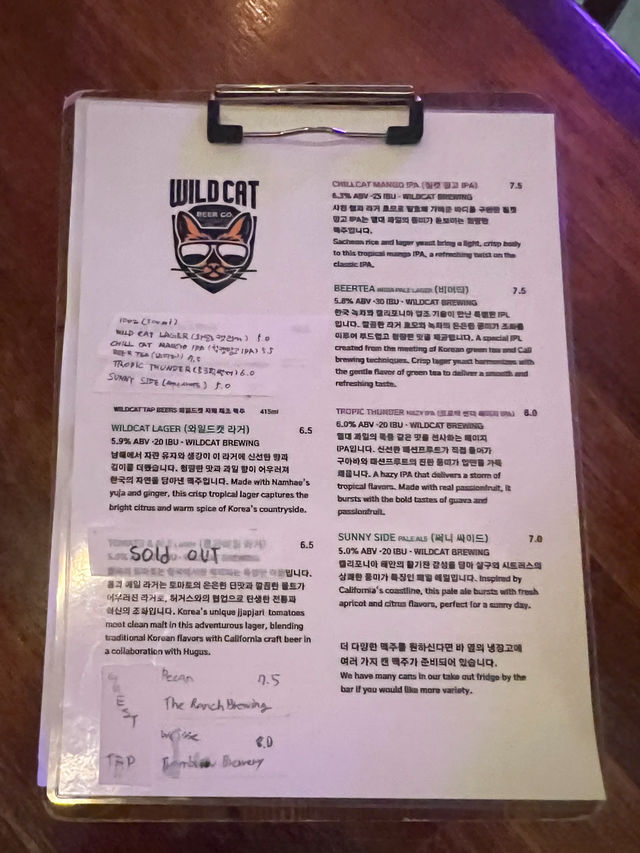 WILD CAT
BEER CO.
WILD CAT LAGER 5.0
CHILL CAT MANGO IPA 5.5
BEER TEA
TROPIC THUNDER 6.0
SUNNY SIDE 5.0
WILDCAT TAP BEERS 와일드캣 자체 제조 맥주 415ml
WILDCAT LAGER (와일드캣 라거) 6.5
5.9% ABV -20 IBU - WILDCAT BREWING
남해에서 자란 유자와 생강이 이 라거에 신선한 향과
깊이를 더했습니다. 청량한 맛과 과일 향이 어우러져
한국의 자연을 담아낸 맥주입니다. Made with Namhae's
yuja and ginger, this crisp tropical lager captures the
bright citrus and warm spice of Korea's countryside.
6.5
SOLD OUT
홉과 에일 라거는 토마토의 은은한 단맛과 깔끔한 몰트가
어우러진 라거로, 허거스와의 협업으로 탄생한 전통과
혁신의 조화입니다. Korea's unique jjapjari tomatoes
meet clean malt in this adventurous lager, blending
traditional Korean flavors with California craft beer in
a collaboration with Hugus.
GUEST TAP
Pecan 7.5
The Ranch Brewing
8.0
CHILLCAT MANGO IPA (칠캣 망고 IPA) 7.5
6.3% ABV -25 IBU - WILDCAT BREWING
맥주입니다.
Sacheon rice and lager yeast bring a light, crisp body
to this tropical mango IPA, a refreshing twist on the
classic IPA.
BEERTEA INDIA PALE LAGER (비어티) 7.5
5.8% ABV -30 IBU - WILDCAT BREWING
한국 녹차와 캘리포니아 양조 기술이 만난 특별한 IPL
입니다. 깔끔한 라거 효모와 녹차의 은은한 풍미가 조화를
이루어 부드럽고 청량한 맛을 제공합니다. A special IPL
created from the meeting of Korean green tea and Cali
brewing techniques. Crisp lager yeast harmonizes with
the gentle flavor of green tea to deliver a smooth and
refreshing taste.
TROPIC THUNDER HAZY IPA (트로픽 썬더 헤이지 IPA) 8.0
6.0% ABV -20 IBU - WILDCAT BREWING
열대 과일의 폭풍 같은 맛을 선사하는 헤이지
IPA입니다. 신선한 패션프루트가 직접 들어가
구아바와 패션프루트의 진한 풍미가 입안을 가득
채웁니다. A hazy IPA that delivers a storm of
tropical flavors. Made with real passionfruit, it
bursts with the bold tastes of guava and
passionfruit.
SUNNY SIDE PALE ALE (써니 싸이드) 7.0
5.0% ABV -20 IBU - WILDCAT BREWING
캘리포니아 해안의 활기찬 감성을 담아 살구와 시트러스의
상쾌한 풍미가 특징인 페일 에일입니다. Inspired by
California's coastline, this pale ale bursts with fresh
apricot and citrus flavors, perfect for a sunny day.
더 다양한 맥주를 원하신다면 바 옆의 냉장고에
여러 가지 캔 맥주가 준비되어 있습니다.
We have many cans in our take out fridge by the
bar if you would like more variety.